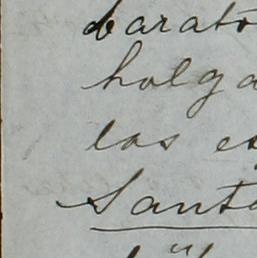 barato
holga
las e
Santa